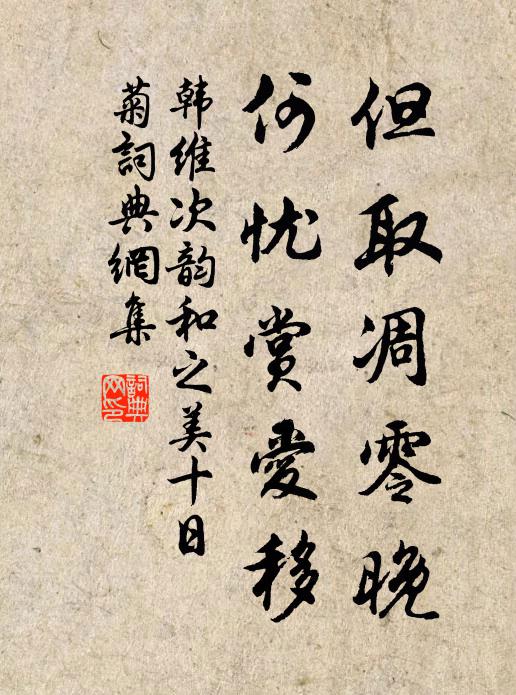 但取凋零晚
何忧赏爱移
韩维次韵和之美十日
菊詞典網集
詞典网印